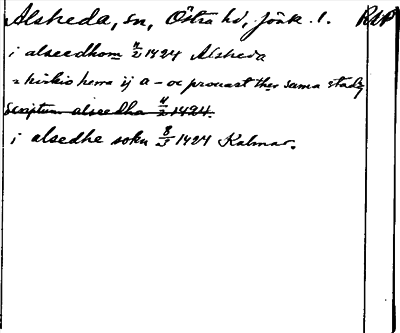 Alsheda, sn, Östra hd, Jönk. l. RAP
i alseedhom 4/2 1424 Alsheda
= kirkio herra ij a – oc prouast ther sama stadz
Scriptum alseedha 4/2 1424.
i alsedhe sokn 8/5 1424 Kalmar.